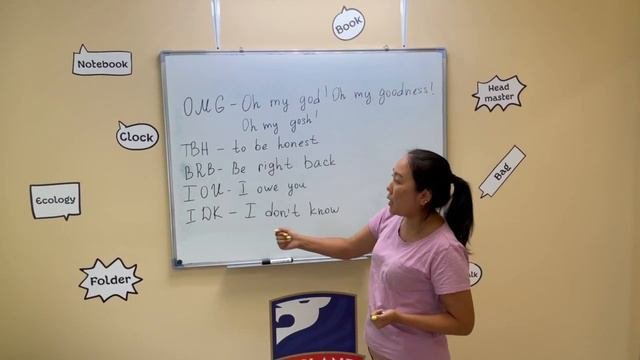 Book
Notebook
OMG - Oh my god! Oh my goodness!
Oh my gosh!
Head
master
Clock
TBH - to be honest
BRB - Be right back
Bag
Ecology
IOU - I owe you
IDK - I don't know
Folder